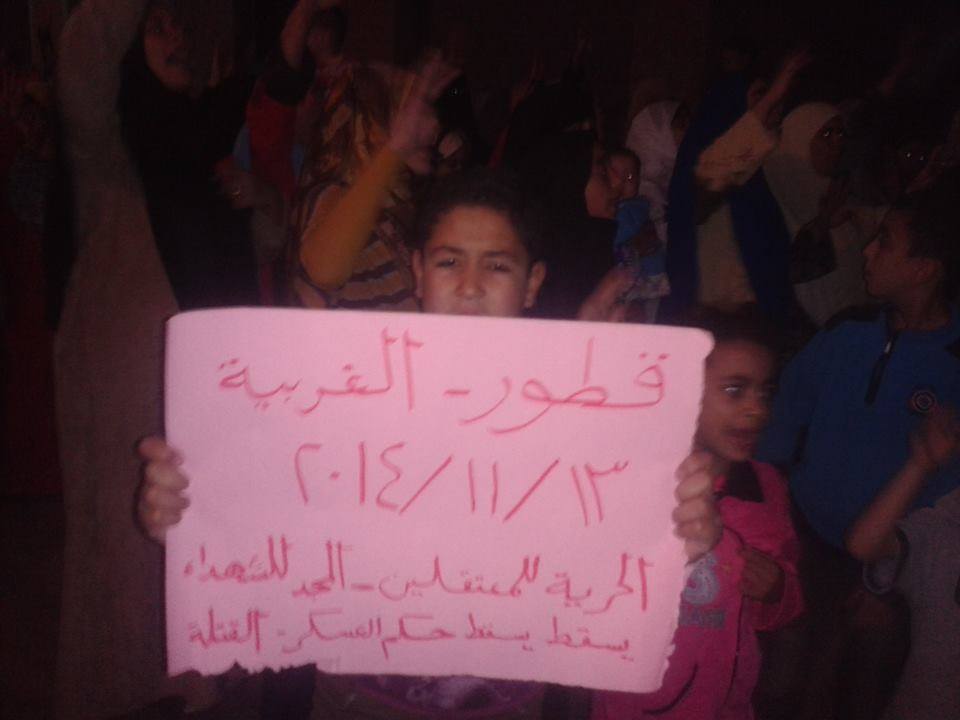 قطور - الغربية
٢٠١٤/١١/١٣
الحرية للمعتقلين - المجد للشهداء
يسقط يسقط حكم العسكر - القتلة